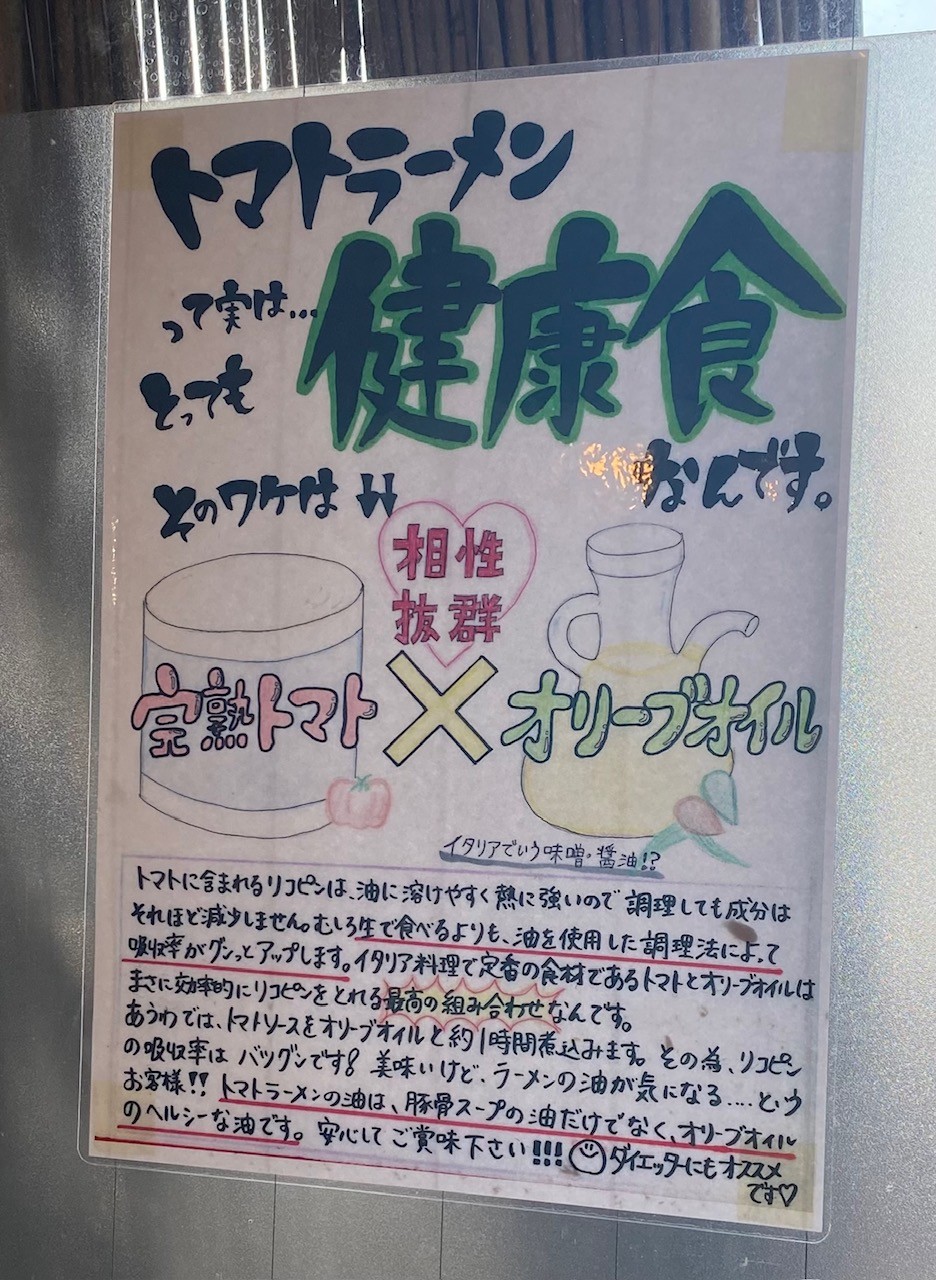 トマトラーメン
って実は…
とっても
健康食
なんです。
そのワケは
相性
抜群
完熟トマト × オリーブオイル
イタリアでいう味噌・醤油!?
トマトに含まれるリコピンは、油に溶けやすく熱に強いので調理しても成分は
それほど減少しません。むしろ生で食べるよりも、油を使用した調理法によって
吸収率がグンッとアップします。イタリア料理で定番の食材であるトマトとオリーブオイルは
まさに効率的にリコピンをとれる最高の組み合わせなんです。
あうわでは、トマトソースをオリーブオイルと約1時間煮込みます。その為、リコピン
の吸収率はバツグンです! 美味いけど、ラーメンの油が気になる....という
お客様!! トマトラーメンの油は、豚骨スープの油だけでなく、オリーブオイル
のヘルシーな油です。安心してご賞味下さい!!! ダイエッターにもオススメ
です♡